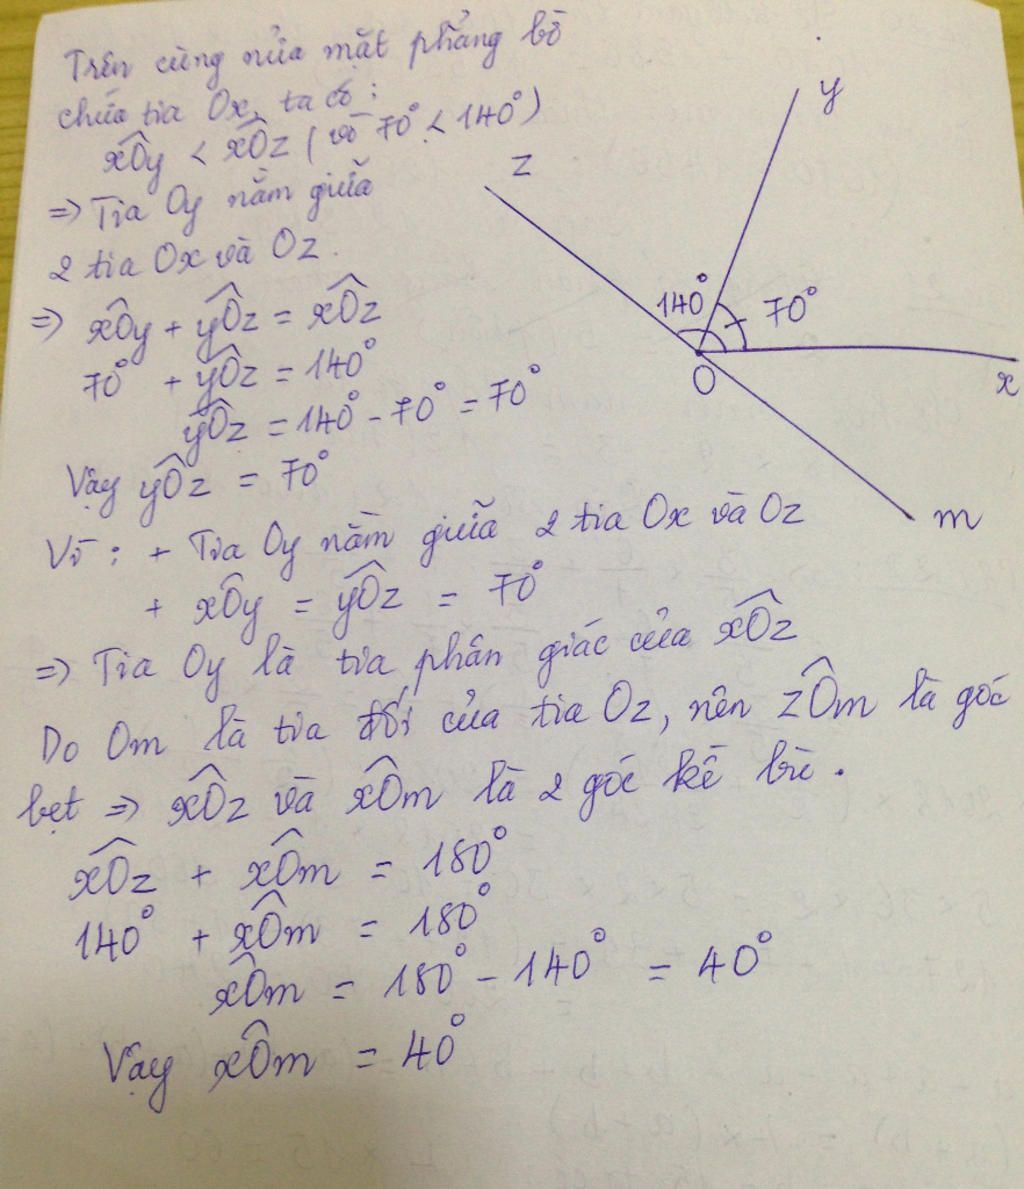 Trên cùng nửa mặt phẳng bờ
chứa tia Ox, ta có:
xÔy < xÔz (vì 70° < 140°)
=> Tia Oy nằm giữa
2 tia Ox và Oz.
=> xÔy + yÔz = xÔz
70° + yÔz = 140°
yÔz = 140° - 70° = 70°
Vậy yÔz = 70°
Vì: + Tia Oy nằm giữa 2 tia Ox và Oz
+ xÔy = yÔz = 70°
=> Tia Oy là tia phân giác của xÔz
Do Om là tia đối của tia Oz, nên zÔm là góc
bẹt => xÔz và xÔm là 2 góc kề bù.
xÔz + xÔm = 180°
140° + xÔm = 180°
xÔm = 180° - 140° = 40°
Vậy xÔm = 40°
y
z
140°
70°
O
x
m